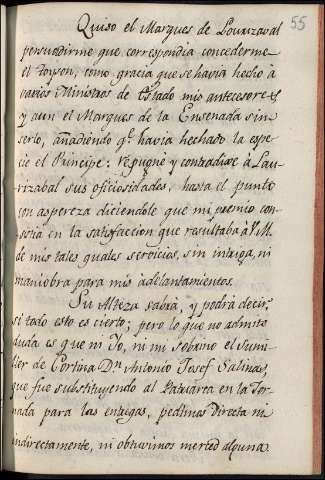 55
Quiso el Marques de Lourizaval
persuadirme que correspondia concederme
el Toyson, como gracia que se havia hecho à
varios Ministros de Estado mis antecesores,
y aun el Marques de la Ensenada sin
serlo, añadiendo q.e havia hechado la espe
cie el Principe: repugnè y contradixe à Lau-
rizabal sus oficiosidades, hasta el punto
con aspereza diciendole que mi premio con-
sistia en la satisfaccion que resultaba à V.M.
de mis tales quales servicios, sin intriga, ni
maniobra para mis adelantamientos.
Su Alteza sabrà, y podrà decir,
si todo esto es cierto; pero lo que no admite
duda es que ni Yo, ni mi sobrino el Sumi-
ller de Cortina D.n Antonio Josef Salinas,
que fue substituyendo al Patriarca en la Jor-
nada para las entregas, pedimos directa ni
indirectamente, ni obtuvimos merced alguna.